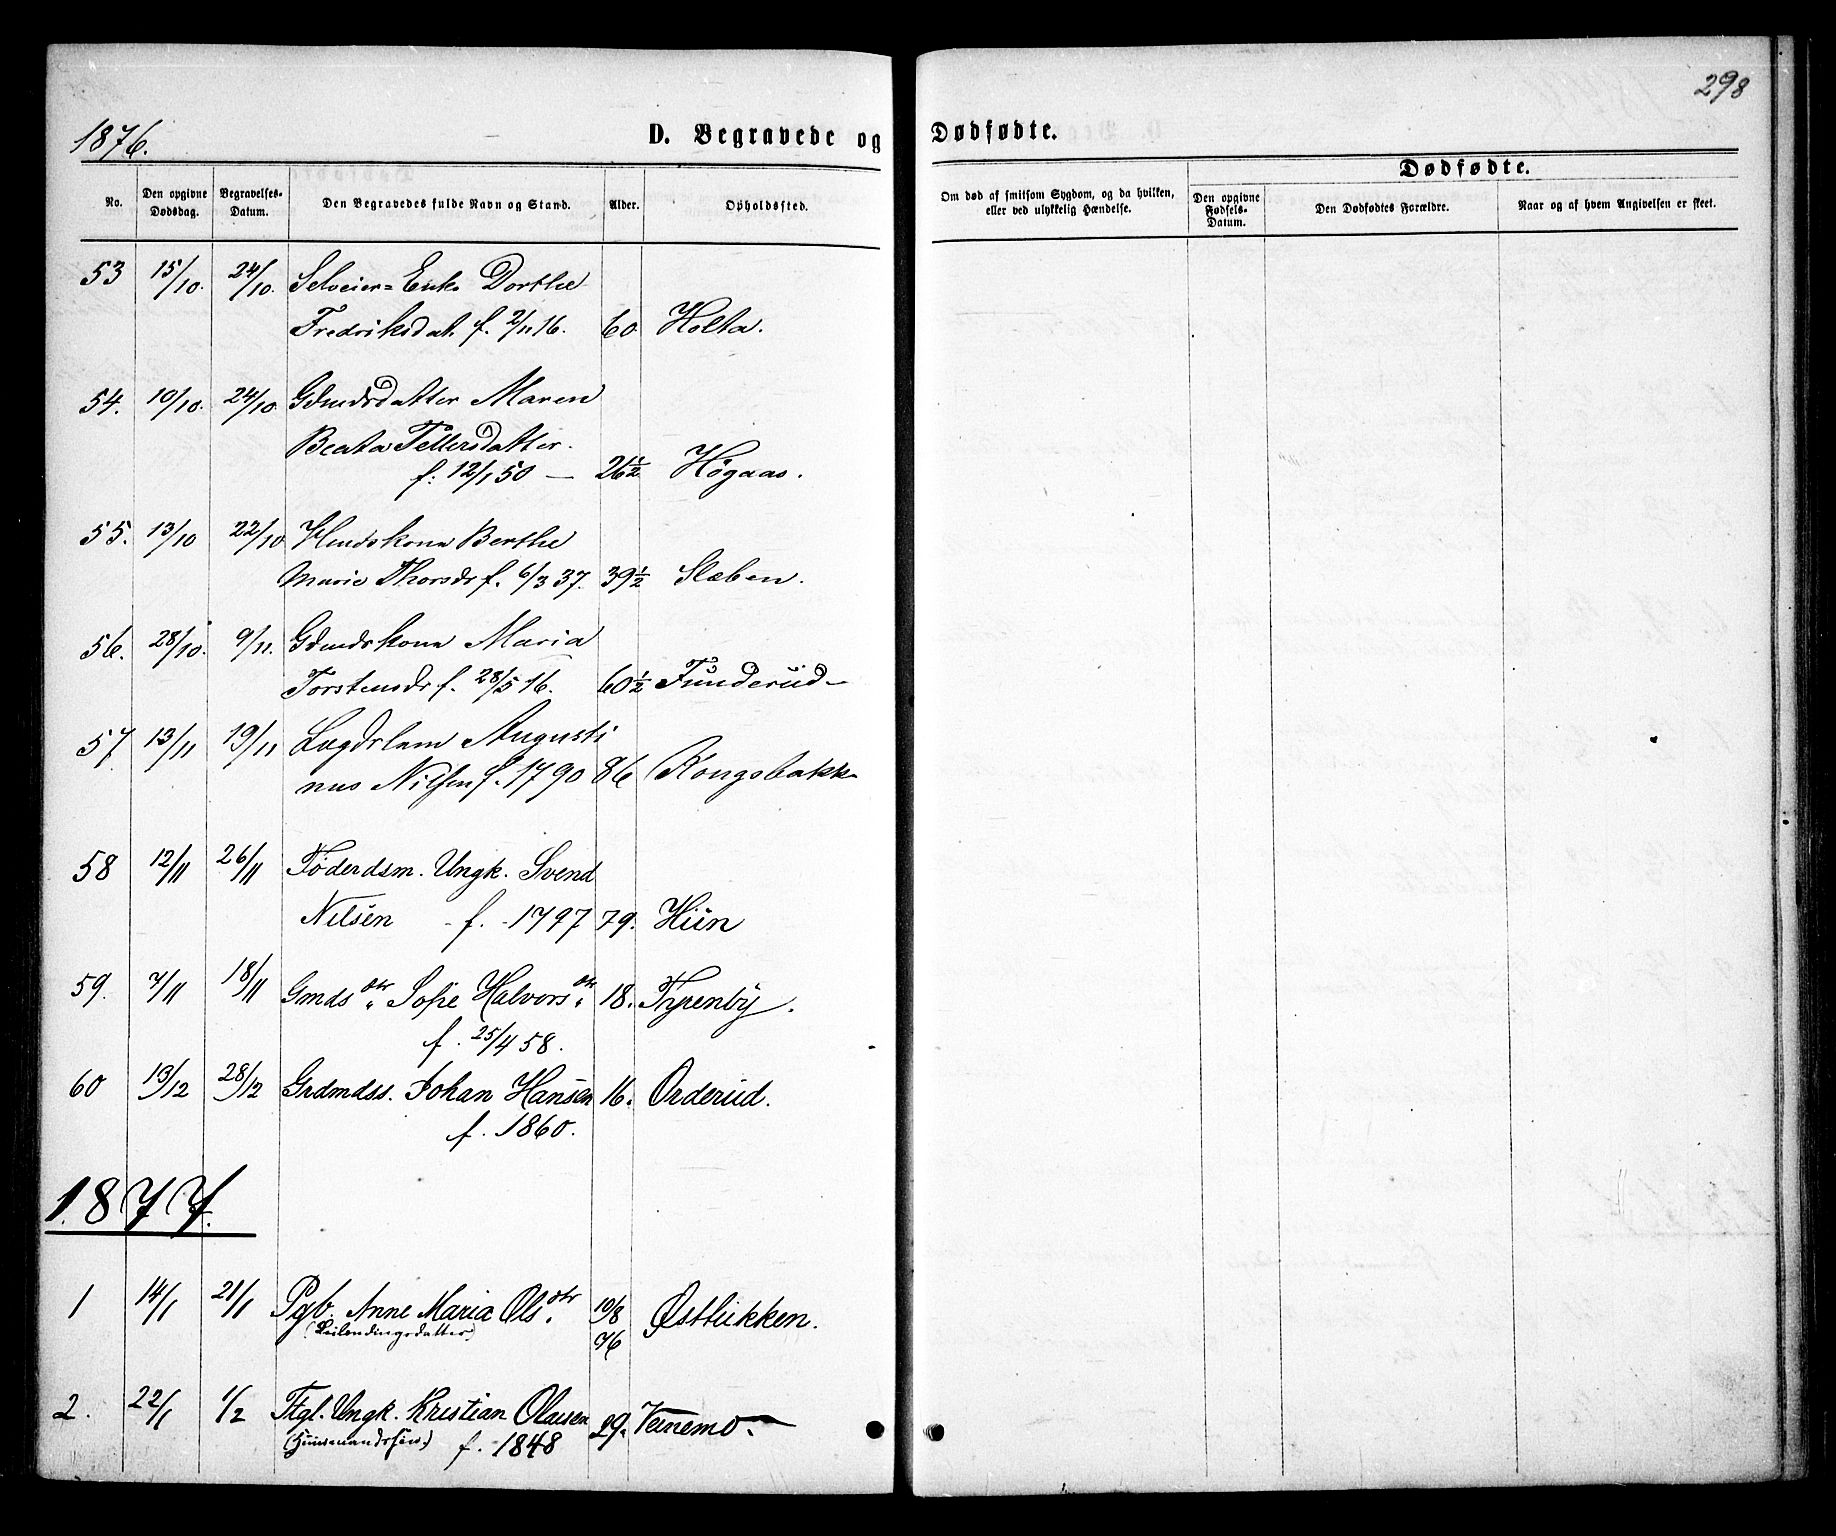 298
1876.
D. Begravede og Dødfødte.
Dødfødte.
No.
Den opgivne Dødsdag.
Begravelses-Datum.
Den Begravedes fulde Navn og Stand.
Alder.
Opholdssted.
Om død af smitsom Sygdom, og da hvilken, eller ved ulykkelig Hændelse.
Den opgivne Fødsels-Datum.
Den Dødfødtes Forældre.
Naar og af hvem Angivelsen er skeet.
53 15/10. 24/10. Selveier= Enke Dorthe
Fredriksdat. f. 2/11 16. 60 Holta.
54. 10/10. 24/10. Gdmdsdatter Maren
Beata Tellersdatter.
f: 12/1 50 — 26½ Høgaas.
55. 13/10 22/10 Hmdskona Berthe
Marie Thorsdr f. 6/3 37. 39½ Slæben.
56. 28/10. 9/11. Gdmdskona Maria
Torstensdr f. 28/5 16. 60½ Funderud
57 13/11 19/11 Lægdslem Augusti
nus Nilsen f. 1790 86 Kongsbakk
58 12/11 26/11 Føderdsm. Ungk. Svend
Nilsen - f. - 1797 79. Huen
59. 7/11 18/11 Gmdsdtr. Sofie Halvorsdtr. 18.
f. 25/4 58.
60 13/12 28/12 Grdmdss. Johan Hansen 16. Orderud.
f. 1860.
1877.
1 14/1 21/1 Pgb. Anne Maria Olsdtr. 10/8 Østlukken.
(Leilendingsdatter) 76
2. 22/1 1/2 Ftgl. Ungk. Kristian Olausen 29.
(Huusmandssøn) f. 1848